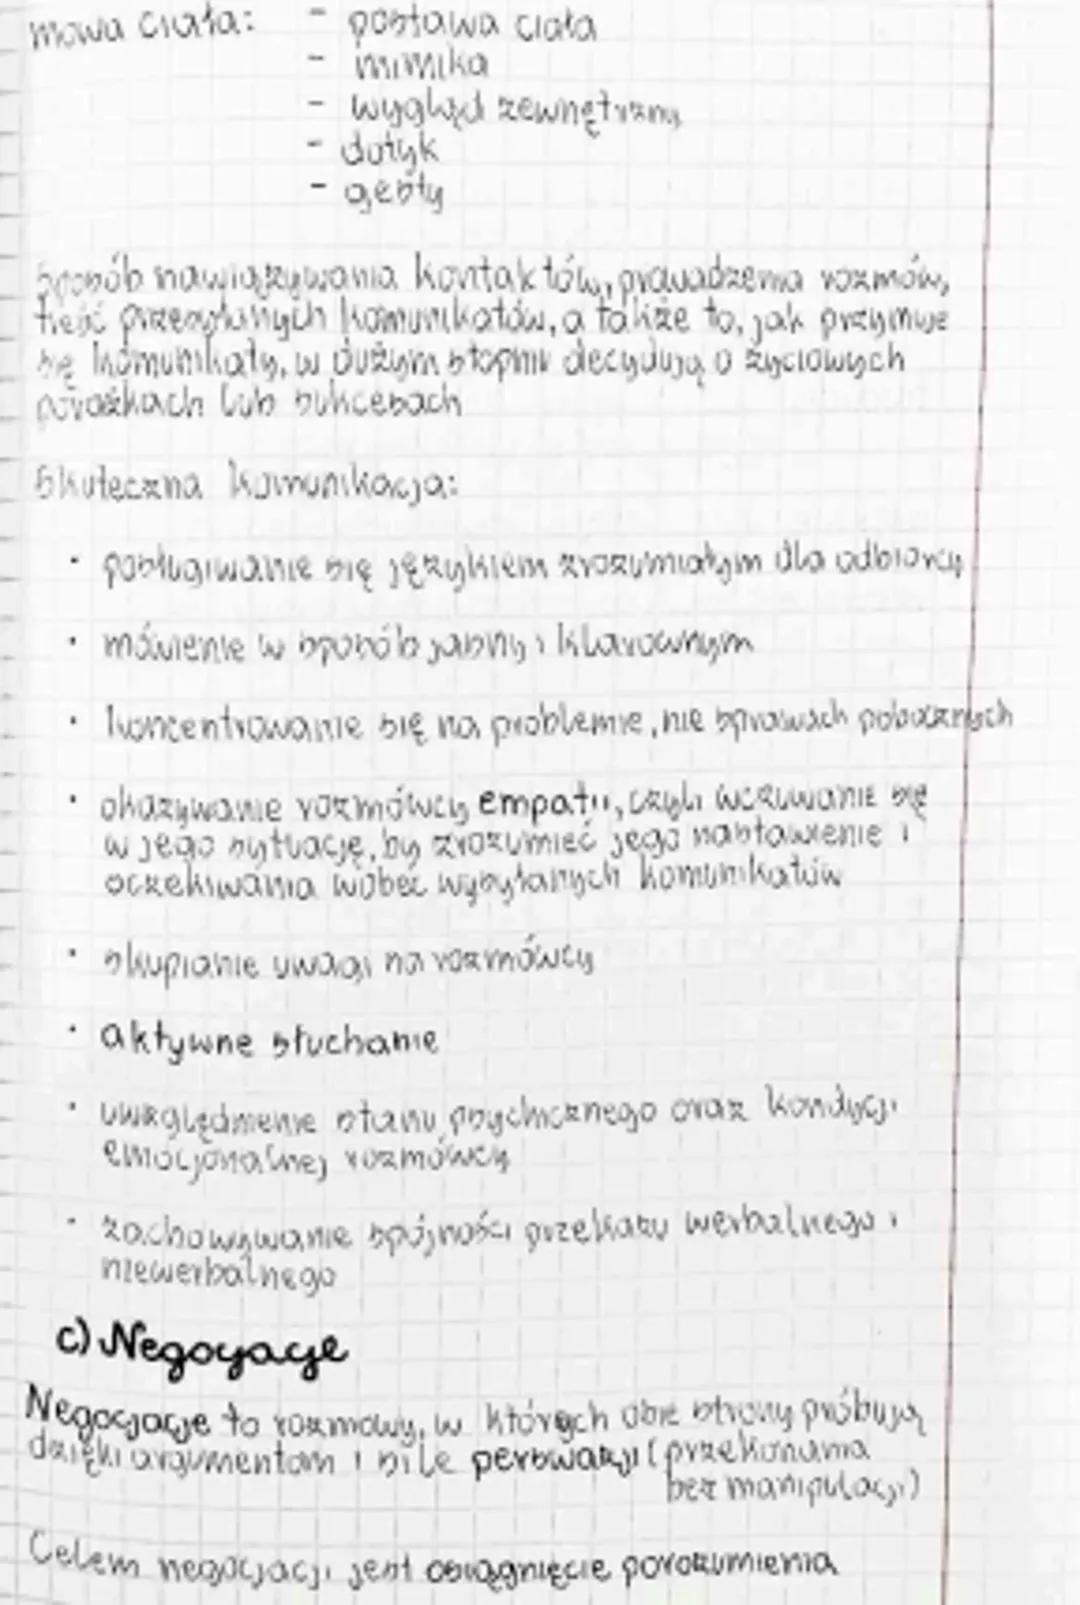 mowa ciała: - postawa ciała
- mimika
- wygląd zewnętrzny
- dotyk
- gesty
Sposób nawiązywania kontaktów, prowadzenia rozmów,
treść przesyłanych komunikatów, a także to, jak przyjmuje
się komunikaty, w dużym stopniu decydują o życiowych
porażkach lub sukcesach
Skuteczna komunikacja:
• posługiwanie się językiem zrozumiałym dla odbiorcy
• mówienie w sposób jasny i klarownym
• koncentrowanie się na problemie, nie sprawach pobocznych
• okazywanie rozmówcy empatii, czyli wczuwanie się
w jego sytuację, by zrozumieć jego nastawienie i
oczekiwania wobec wysyłanych komunikatów
• skupianie uwagi na rozmówcy
• aktywne słuchanie
• uwzględnienie stanu psychicznego oraz kondycji
emocjonalnej rozmówcy
• zachowywanie spójności przekazu werbalnego i
niewerbalnego
c) Negocjacje
Negocjacje to rozmowy, w których obie strony próbują
dzięki argumentom i sile perswazji (przekonania
bez manipulacji)
Celem negocjacji jest osiągnięcie porozumienia